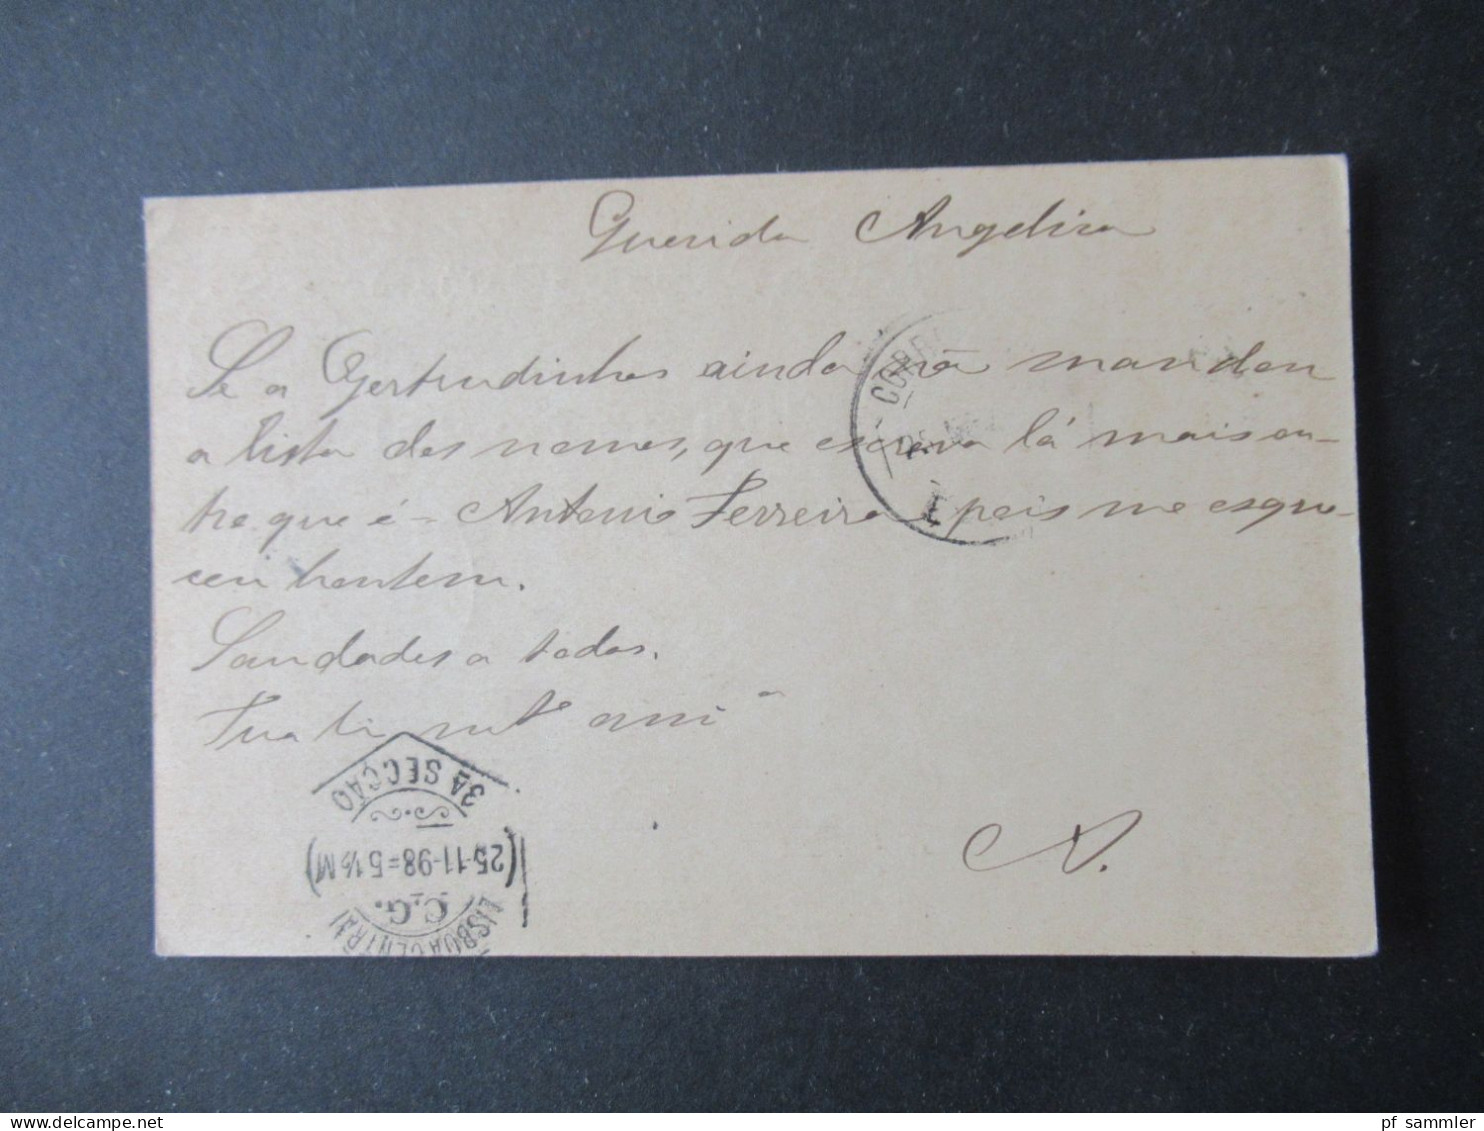 Querida Angelica
Se a Gertrudinhas ainda não mandou
a lista dos nomes, que escreva lá mais ou-
tro que é - Antonio Ferreira, pois me esque-
ceu hontem.
Saudades a todos.
Tua
A.
3A SECÇÃO
(25-11-98=5 ½ M)
C.G.
LISBOA CENTRAL
CORR
pf_sammler